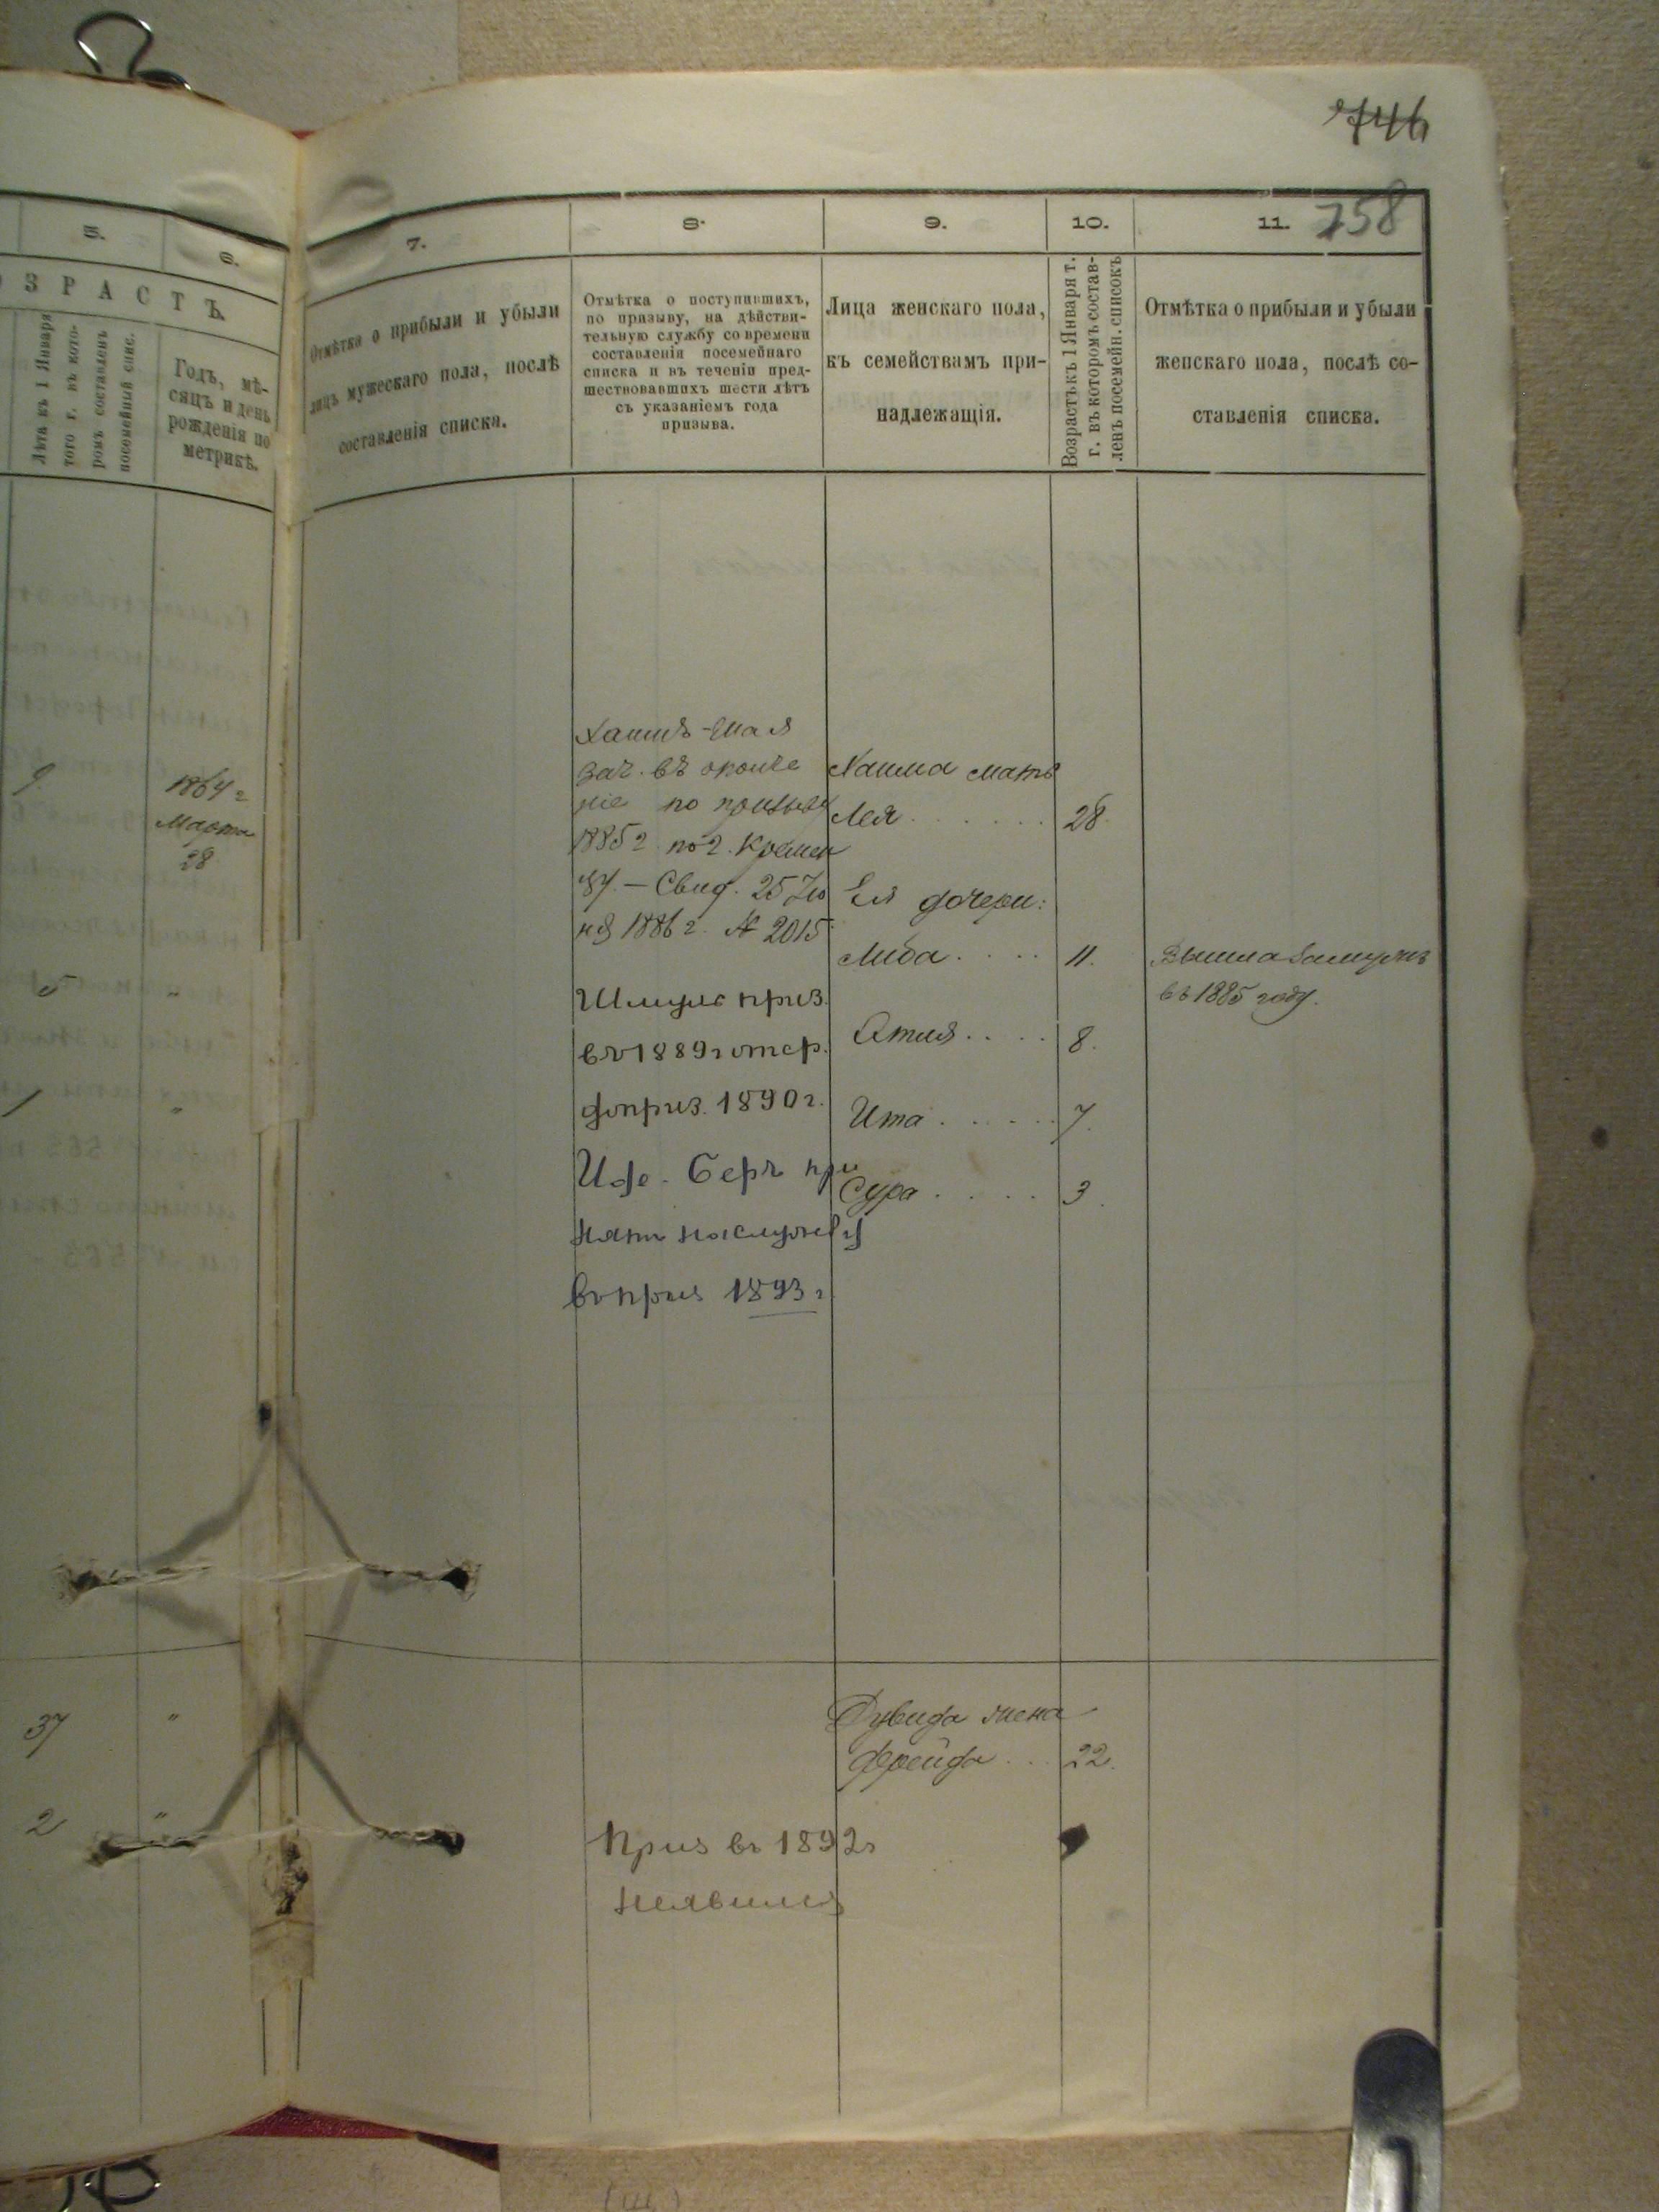 746
758
5.
6.
7.
8.
9.
10.
11.
ОЗРАСТЪ.
Лѣта къ 1 Января
того г. въ кото-
ромъ составленъ
посемейный спис.
Годъ, мѣ-
сяцъ и день
рожденія по
метрикѣ.
Отмѣтка о прибыли и убыли
лицъ мужескаго пола, послѣ
составленія списка.
Отмѣтка о поступившихъ,
по призыву, на дѣйстви-
тельную службу со времени
составленія посемейнаго
списка и въ теченіи пред-
шествовавшихъ шести лѣтъ
съ указаніемъ года
призыва.
Лица женскаго пола,
къ семействамъ при-
надлежащія.
Возрастъ къ 1 Января т.
г. въ которомъ состав-
ленъ посемейн. списокъ
Отмѣтка о прибыли и убыли
женскаго пола, послѣ со-
ставленія списка.
1864 г
Марта
28
зач. въ ополче
ніе по призыву
1885 г. по г. Кремен
чу. — Свид. 25 Ію
ня 1886 г. № 2015
Шмуль приз.
въ 1889 г отср.
до приз. 1890 г.
Иде. Беръ при
нятъ на службу
въ приз 1893 г
Хаима мать
Лея 28.
Ея дочери:
Либа 11. Вышла замужъ
въ 1885 году.
8.
Ита 7.
Сура 3.
37 "
2 "
Дувида жена
Фрейда 22.
Приз въ 1892 г
неявился